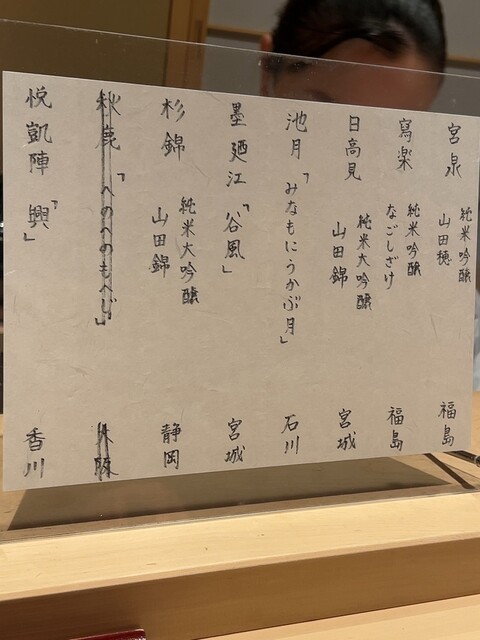 宮泉 純米吟醸 山田穂 福島
寫楽 純米吟醸 なごしざけ 福島
日高見 純米大吟醸 山田錦 宮城
池月「みなもにうかぶ月」 石川
墨廼江「谷風」 宮城
杉錦 純米大吟醸 山田錦 静岡
秋鹿「へのへのもへじ」 大阪
悦凱陣「興」 香川